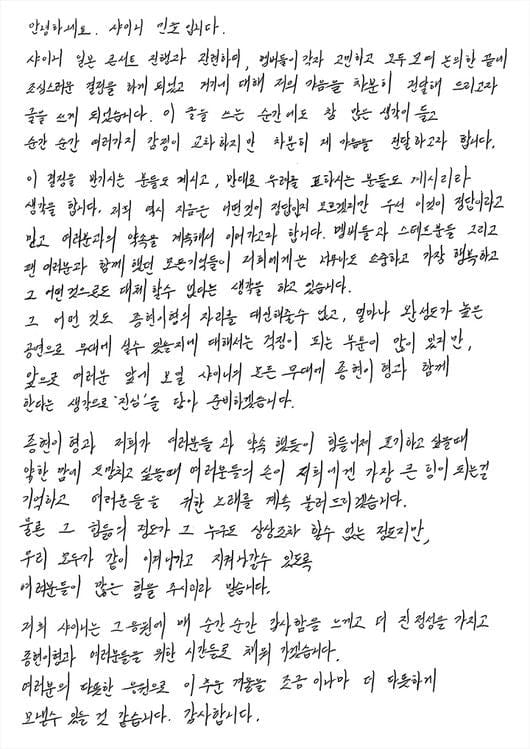 안녕하세요. 샤이니 민호입니다.
샤이니 일본 콘서트 진행과 관련하여, 멤버들이 각자 고민하고 모두 모여 논의한 끝에
조심스러운 결정을 하게 되었고 거기에 대해 저의 마음을 차분히 전달해 드리고자
글을 쓰게 되었습니다. 이 글을 쓰는 순간에도 참 많은 생각이 들고
순간 순간 여러가지 감정이 교차하지만 차분히 제 마음을 전달하고자 합니다.
이 결정을 반기시는 분들도 계시고, 반대로 우려를 표하시는 분들도 계시리라
생각을 합니다. 저희 역시 지금은 어떤것이 정답인지 모르겠지만 우선 이것이 정답이라고
믿고 여러분과의 약속을 계속해서 이어가고자 합니다. 멤버들과 스태프분들 그리고
팬 여러분과 함께 했던 모든기억들이 저희에게는 너무나도 소중하고 가장 행복하고
그 어떤것으로도 대체 할수 없다는 생각을 하고 있습니다.
그 어떤 것도 종현이형의 자리를 대신해줄수 없고, 얼마나 완성도가 높은
공연으로 무대에 설수 있을지에 대해서는 걱정이 되는 부분이 많이 있지만,
앞으로 여러분 앞에 보일 샤이니의 모든 무대에 종현이형과 함께
한다는 생각으로 '진심'을 담아 준비하겠습니다.
종현이형과 저희가 여러분들과 약속 했듯이 힘들어져 포기하고 싶을때
약한 맘에 도망치고 싶을때 여러분들의 손이 저희에겐 가장 큰 힘이 되는걸
기억하고 여러분들을 위한 노래를 계속 불러드리겠습니다.
물론 그 힘듦의 정도가 그 누구도 상상조차 할수 없는 정도지만,
우리 모두가 같이 이겨나가고 지켜나갈수 있도록
여러분들이 많은 힘을 주시리라 믿습니다.
저희 샤이니는 그 응원에 매 순간 순간 감사함을 느끼고 더 진정성을 가지고
종현이형과 여러분들을 위한 시간들로 채워 가겠습니다.
여러분의 따뜻한 응원으로 이 추운 겨울을 조금 이나마 더 따뜻하게
보낼수 있을 것 같습니다. 감사합니다.